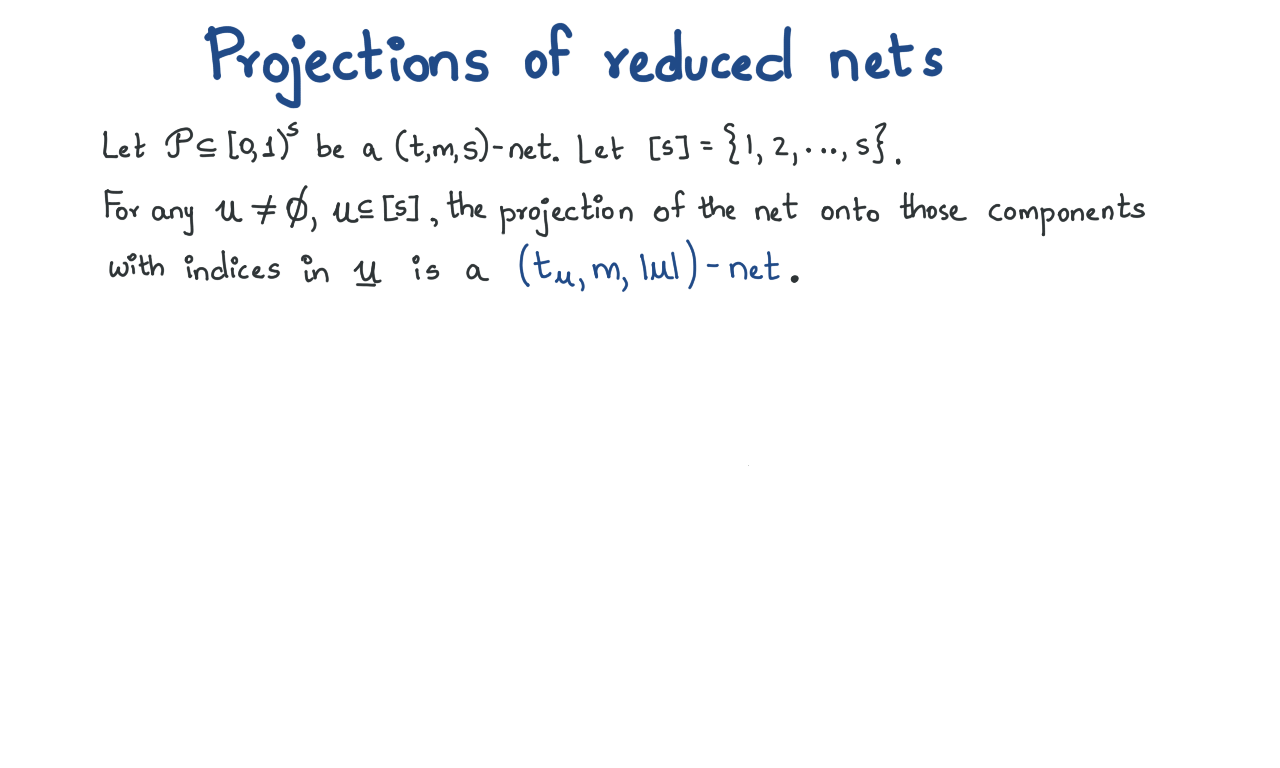 Projections of reduced nets
Let 𝒫 ⊆ [0,1)^s be a (t,m,s)-net. Let [s] = {1, 2, ..., s}.
For any u ≠ ∅, u ⊆ [s], the projection of the net onto those components
with indices in u is a (t_u, m, |u|)-net.